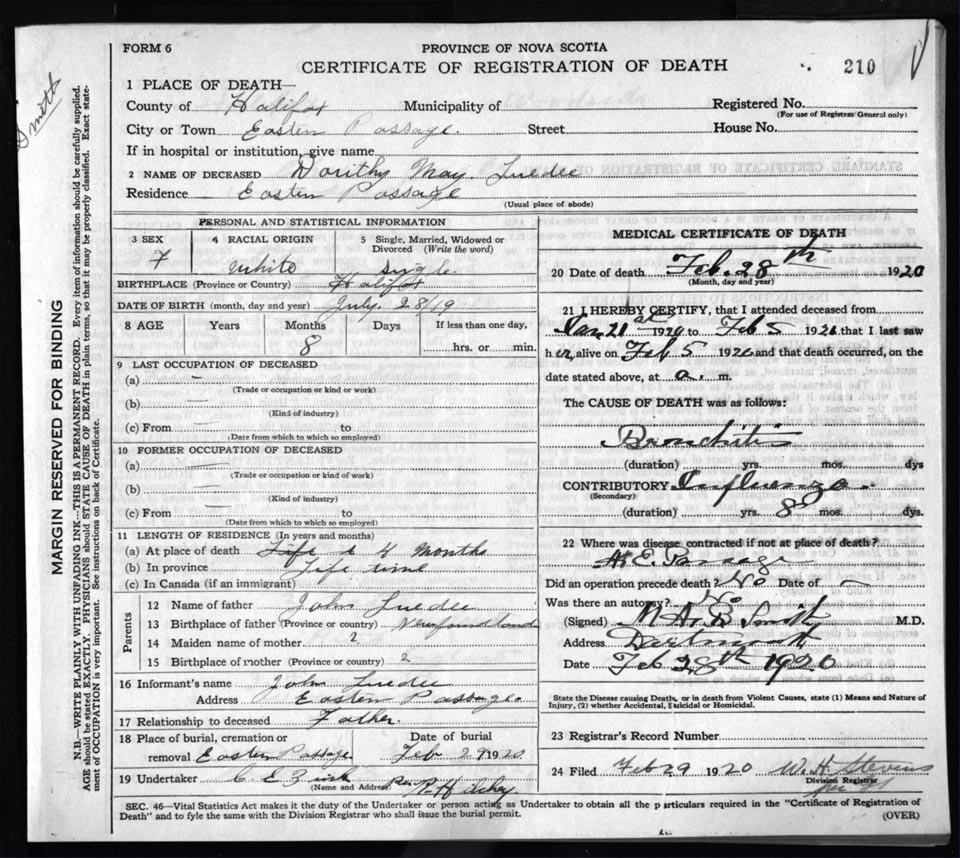 FORM 6
PROVINCE OF NOVA SCOTIA
CERTIFICATE OF REGISTRATION OF DEATH
210
Smith
MARGIN RESERVED FOR BINDING
N.B.—WRITE PLAINLY WITH UNFADING INK—THIS IS A PERMANENT RECORD. Every item of information should be carefully supplied.
AGE should be stated EXACTLY. PHYSICIANS should STATE CAUSE OF DEATH in plain terms, so that it may be properly classified. Exact state-
ment of OCCUPATION is very important. See instructions on back of Certificate.
1 PLACE OF DEATH—
County of Halifax Municipality of Registered No.
(For use of Registrar General only)
City or Town Eastern Passage. Street House No.
If in hospital or institution, give name
2 NAME OF DECEASED Dorithy May. Luedee
Residence Eastern Passage
(Usual place of abode)
PERSONAL AND STATISTICAL INFORMATION
3 SEX
F
4 RACIAL ORIGIN
white
5 Single, Married, Widowed or
Divorced (Write the word)
single
BIRTHPLACE (Province or Country) Halifax
DATE OF BIRTH (month, day and year) July. 28/19
8 AGE Years Months Days If less than one day,
8 hrs. or min.
9 LAST OCCUPATION OF DECEASED
(a) —
(Trade or occupation or kind or work)
(b) —
(Kind of industry)
(c) From — to
(Date from which to which so employed)
10 FORMER OCCUPATION OF DECEASED
(a) —
(Trade or occupation or kind of work)
(b) —
(Kind of industry)
(c) From — to
(Date from which to which so employed)
11 LENGTH OF RESIDENCE (In years and months)
(a) At place of death 4 Months
(b) In province Life time
(c) In Canada (if an immigrant)
Parents
12 Name of father John Luedee
13 Birthplace of father (Province or country) Newfoundland
14 Maiden name of mother ?
15 Birthplace of mother (Province or country) ?
16 Informant's name John Luedee
Address Eastern Passage.
17 Relationship to deceased Father.
18 Place of burial, cremation or Date of burial
removal Eastern Passage Feb 29 1920
19 Undertaker C E Zink
(Name and Address)
MEDICAL CERTIFICATE OF DEATH
20 Date of death Feb. 28th 1920
(Month, day and year)
21 I HEREBY CERTIFY, that I attended deceased from
Jan 21st 1920 to Feb 5 1920 that I last saw
her alive on Feb 5 1920 and that death occurred, on the
date stated above, at a. m.
The CAUSE OF DEATH was as follows:
Bronchitis
(duration) yrs. mos. dys
CONTRIBUTORY Influenza
(Secondary)
(duration) yrs. 8 mos. dys.
22 Where was disease contracted if not at place of death?
At E. Passag
Did an operation precede death? No Date of —
Was there an autopsy? No
(Signed) M A B Smith M.D.
Address Dartmouth
Date Feb 28th 1920
State the Disease causing Death, or in death from Violent Causes, state (1) Means and Nature of
Injury, (2) whether Accidental, Suicidal or Homicidal.
23 Registrar's Record Number
24 Filed Feb 29 1920 W. H. Stevens
Division Registrar
SEC. 46—Vital Statistics Act makes it the duty of the Undertaker or person acting as Undertaker to obtain all the particulars required in the "Certificate of Registration of
Death" and to fyle the same with the Division Registrar who shall issue the burial permit.
(OVER)